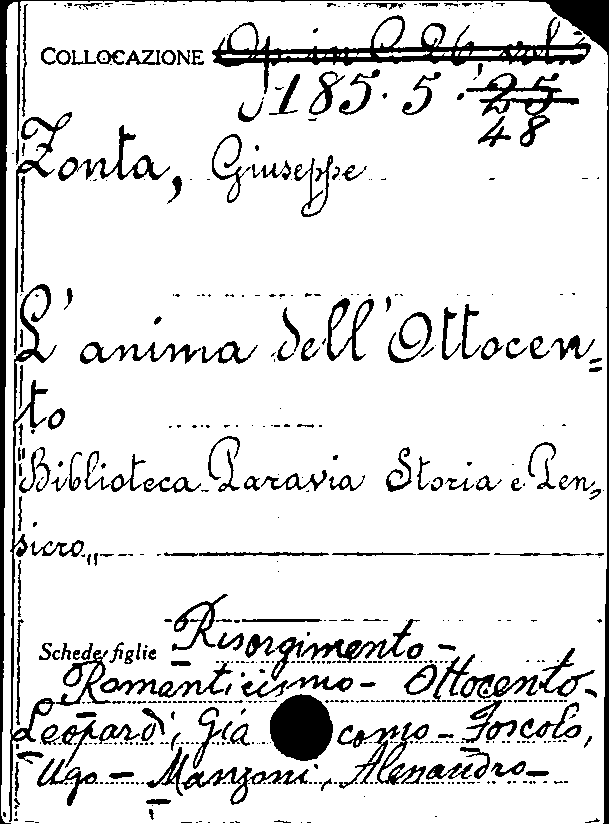 COLLOCAZIONE Op. in C. 26, vol.
185. 5. 25
48
Zonta, Giuseppe
L'anima dell'Ottocen=
to
"Biblioteca Paravia Storia e Pen,
siero„
Schede figlie Risorgimento -
Romanticismo - Ottocento -
Leopardi, Giacomo - Foscolo,
Ugo - Manzoni, Alessandro -